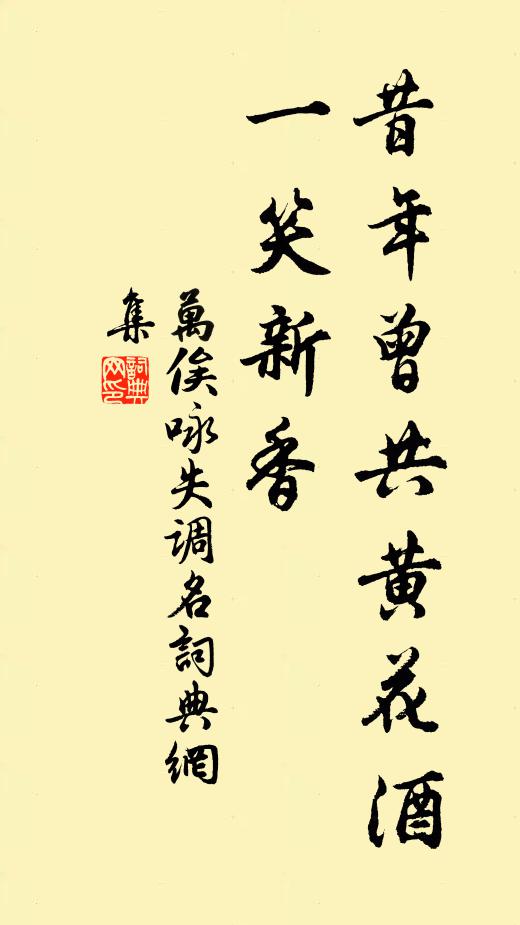 昔年曾共黄花酒
一笑新香
萬俟咏失调名詞典網
集
詞典
网印